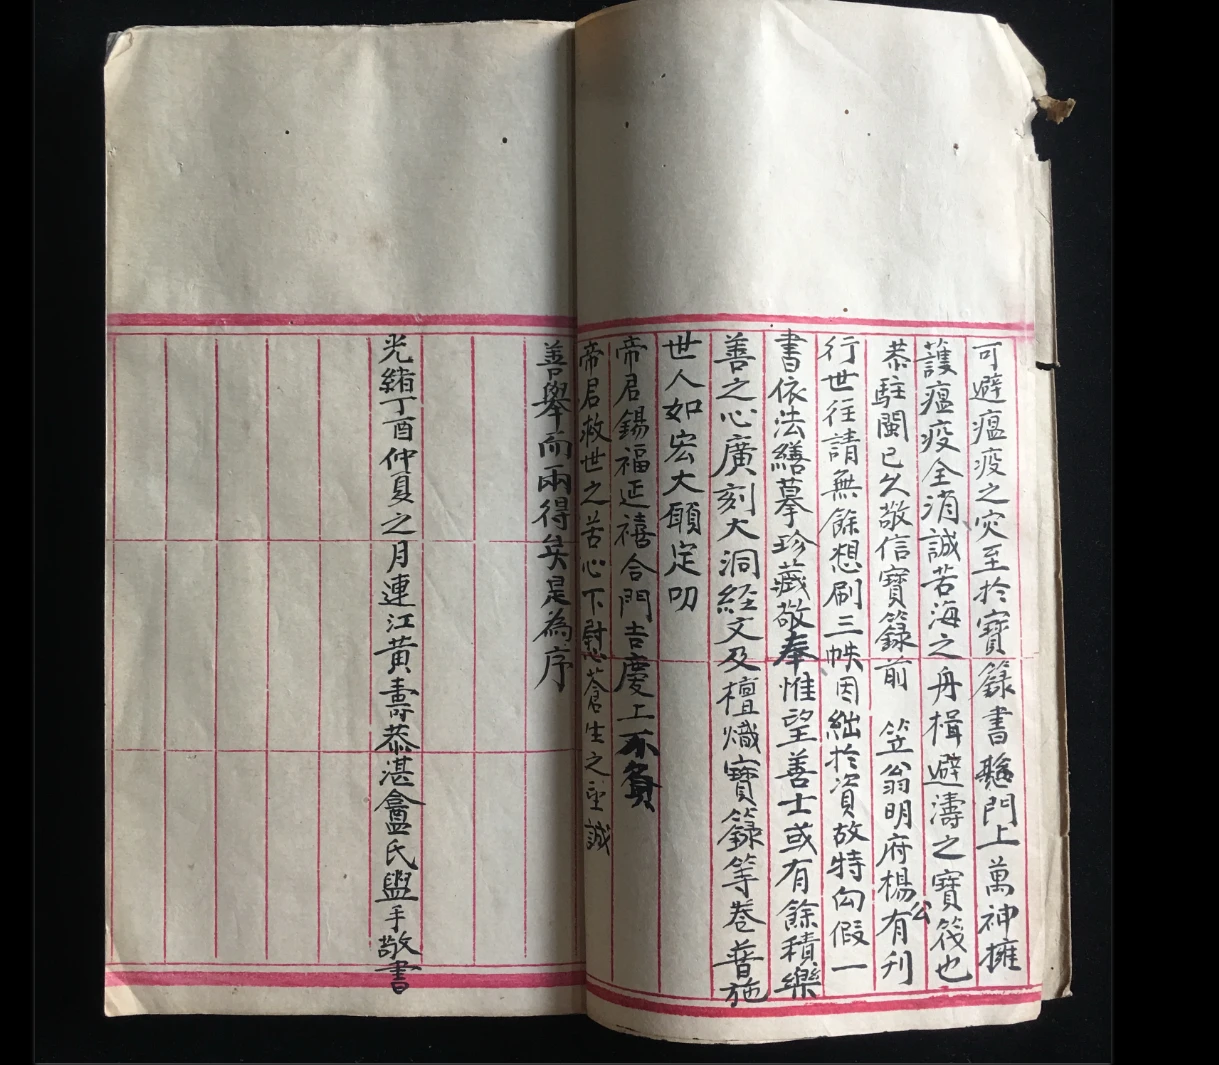 可避瘟疫之灾至於寶籙書懸門上萬神擁
護瘟疫全消誠苦海之舟楫避濤之寶筏也
恭駐閩已久敬信寶籙前 笠翁明府楊公有刋
行世往請無餘想刷三帙因絀於資故特匃假一
書依法繕摹珍藏敬奉惟望善士或有餘積樂
善之心廣刻大洞經文及檀熾寶籙等卷普施
世人如宏大願定叨
帝君錫福延禧合門吉慶上不負
帝君救世之苦心下慰蒼生之望誠
善舉而兩得矣是為序
光緒丁酉仲夏之月連江黃壽恭湛盦氏盥手敬書